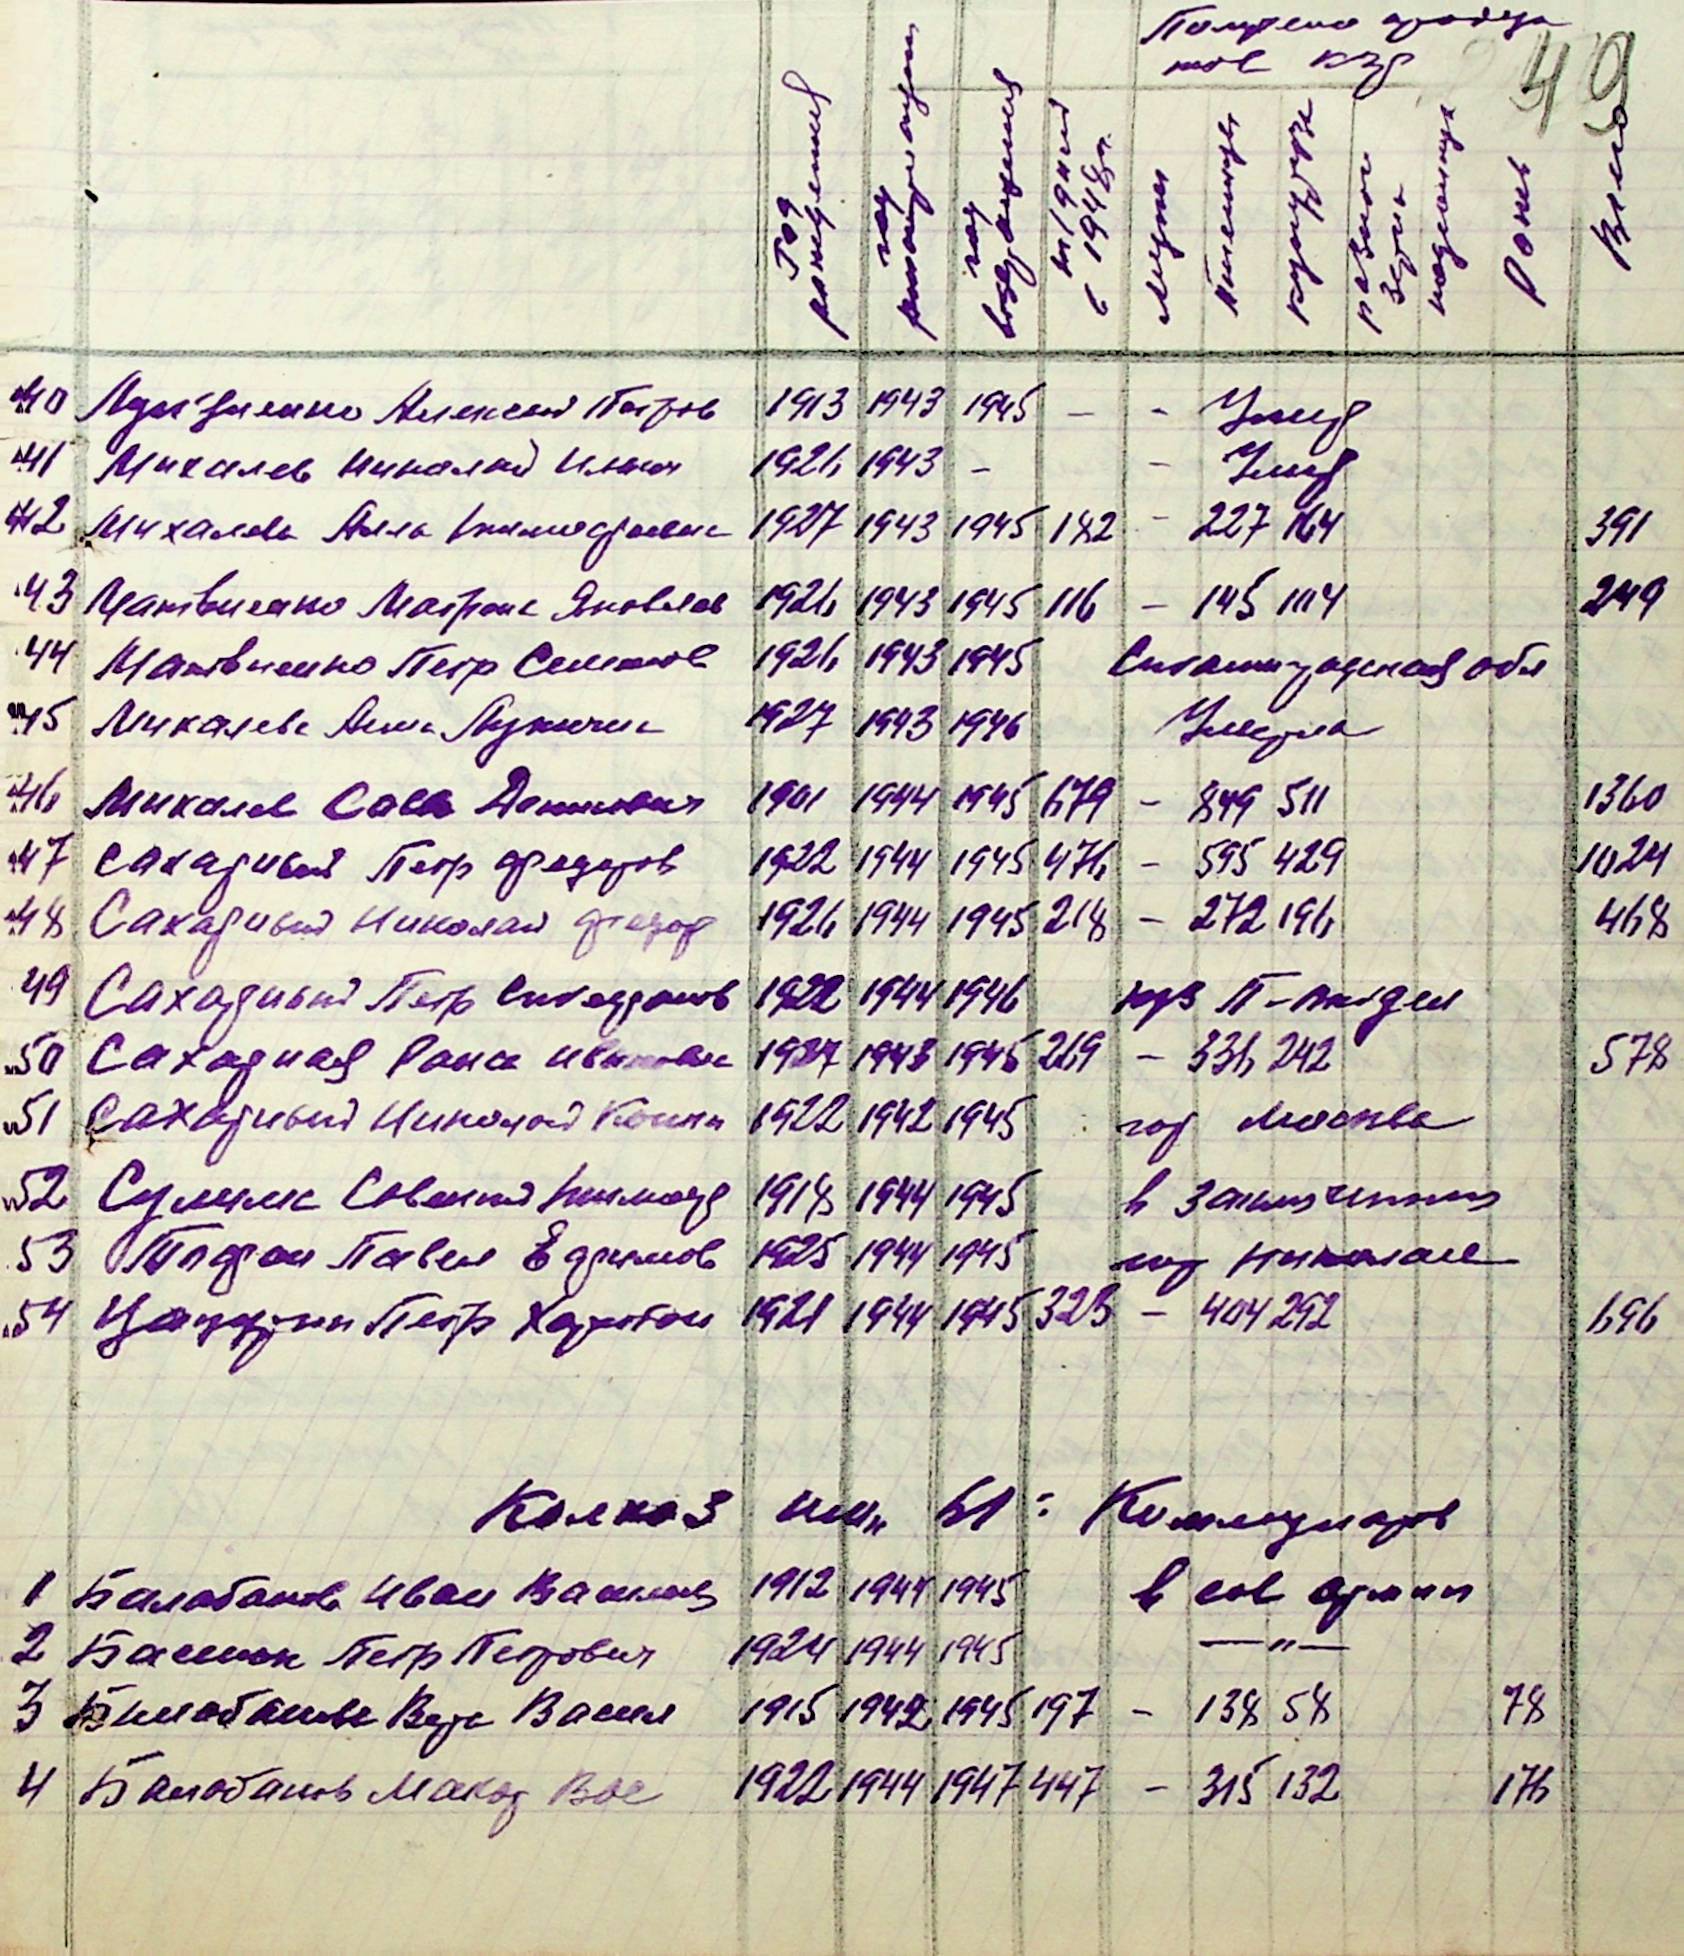 Получено продук
тов кгр
49
Год рождения
год репатриации
год возвращения
тр/дней с 1948 г.
муки
пшеницы
кукурузы
разной зерн
подсолнуха
Рожь
Всего
40 Алексей Петров 1913 1943 1945 – - Умер
41 Михалев Николай Ильич 1926 1943 – - Умер
42 Михалева Алла Тимофеевна 1927 1943 1945 182 - 227 164 391
43 Матвиенко Матрена Яковлев 1926 1943 1945 116 – 145 104 249
44 Матвиенко Петр Семенов 1926 1943 1945 обл
45 Михалева Анна Лукична 1927 1943 1946 Умерла
46 Михалев Савва Денисович 1901 1944 1945 679 – 849 511 1360
47 Сахарный Петр Федоров 1922 1944 1945 476 – 595 429 1024
48 Сахарный Николай Федор 1926 1944 1945 218 – 272 196 468
49 Сахарный Петр 1922 1944 1946
50 Сахарная Раиса Ивановна 1927 1943 1945 269 – 336 242 578
51 Сахарный Николай 1922 1942 1945 гор Москва
52 Савелий Тимофе 1918 1944 1945 в заключении
53 Павел Ефимов 1925 1944 1945 гор Николаев
54 Петр Харитон 1921 1944 1945 323 – 404 292 696
Колхоз им. 61 = Коммунаров
1 Балабанов Иван Василье 1912 1944 1945 в сов армии
2 Петр Петрович 1924 1944 1945 —"—
3 Вера Васил 1915 1942 1945 197 – 138 58 78
4 Балабанов Макар Вас 1922 1944 1947 447 – 315 132 176